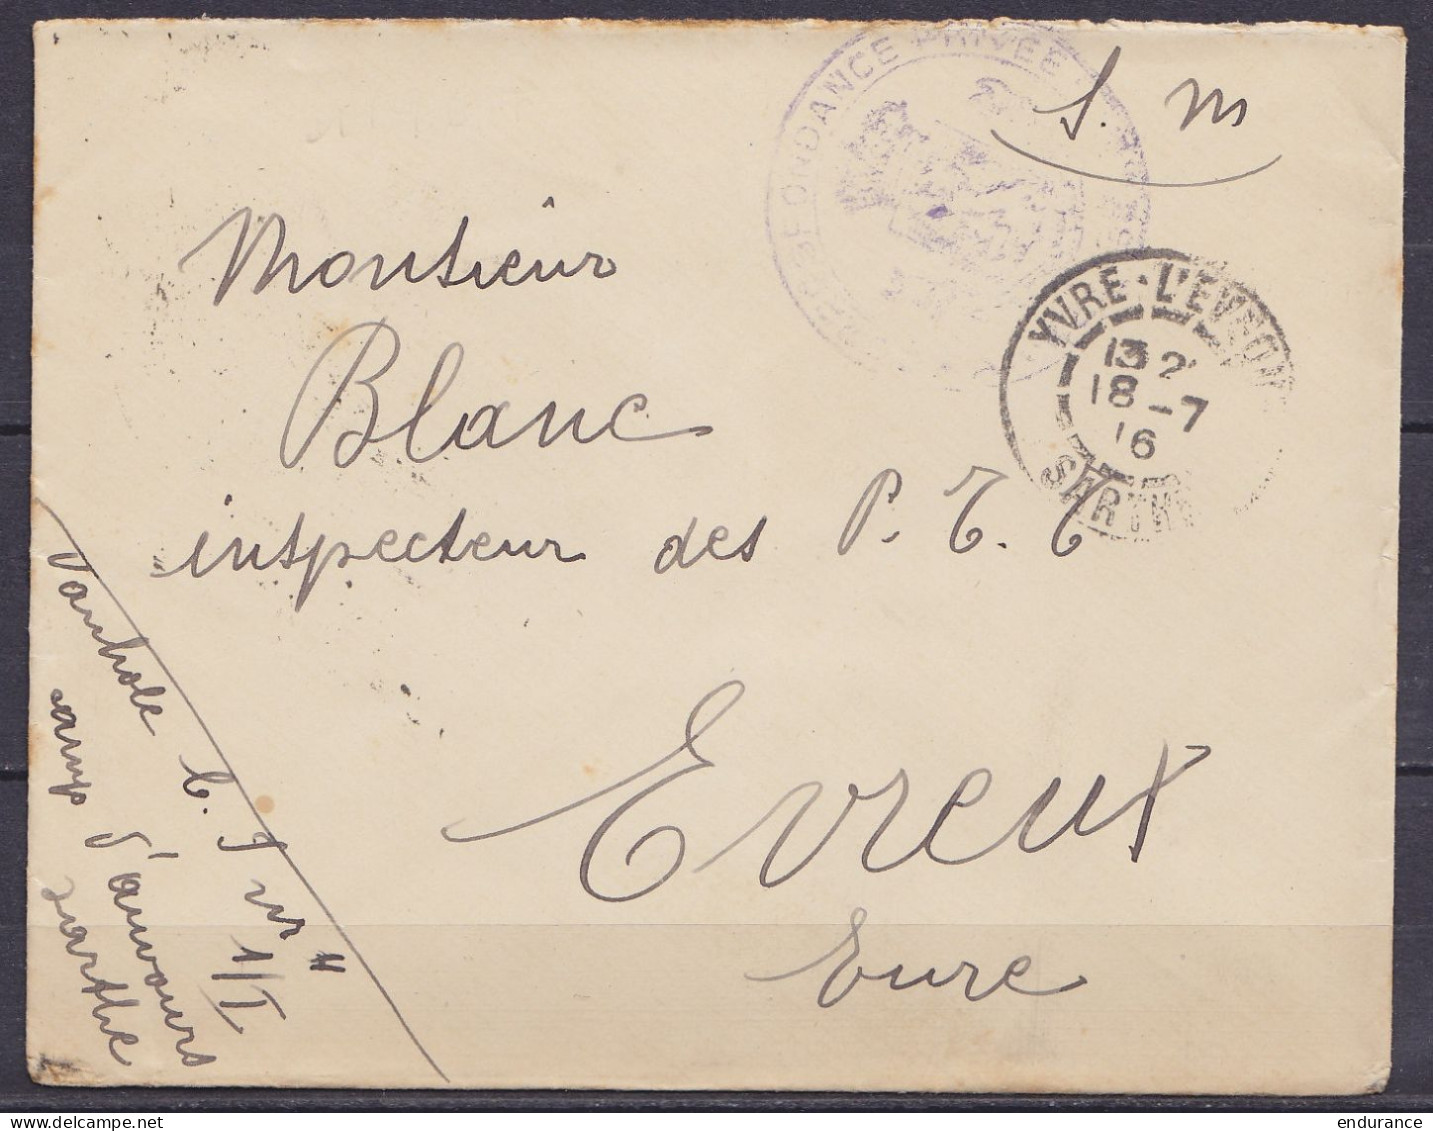 S. M
CORRESPONDANCE PRIVÉE
YVRE-L'EVEQUE
13 2
18-7
16
SARTHE
Monsieur
Blanc
inspecteur des P. T. T
Evreux
Eure
Vanhole C. I
1/I
camp d'auvours
sarthe
endurance